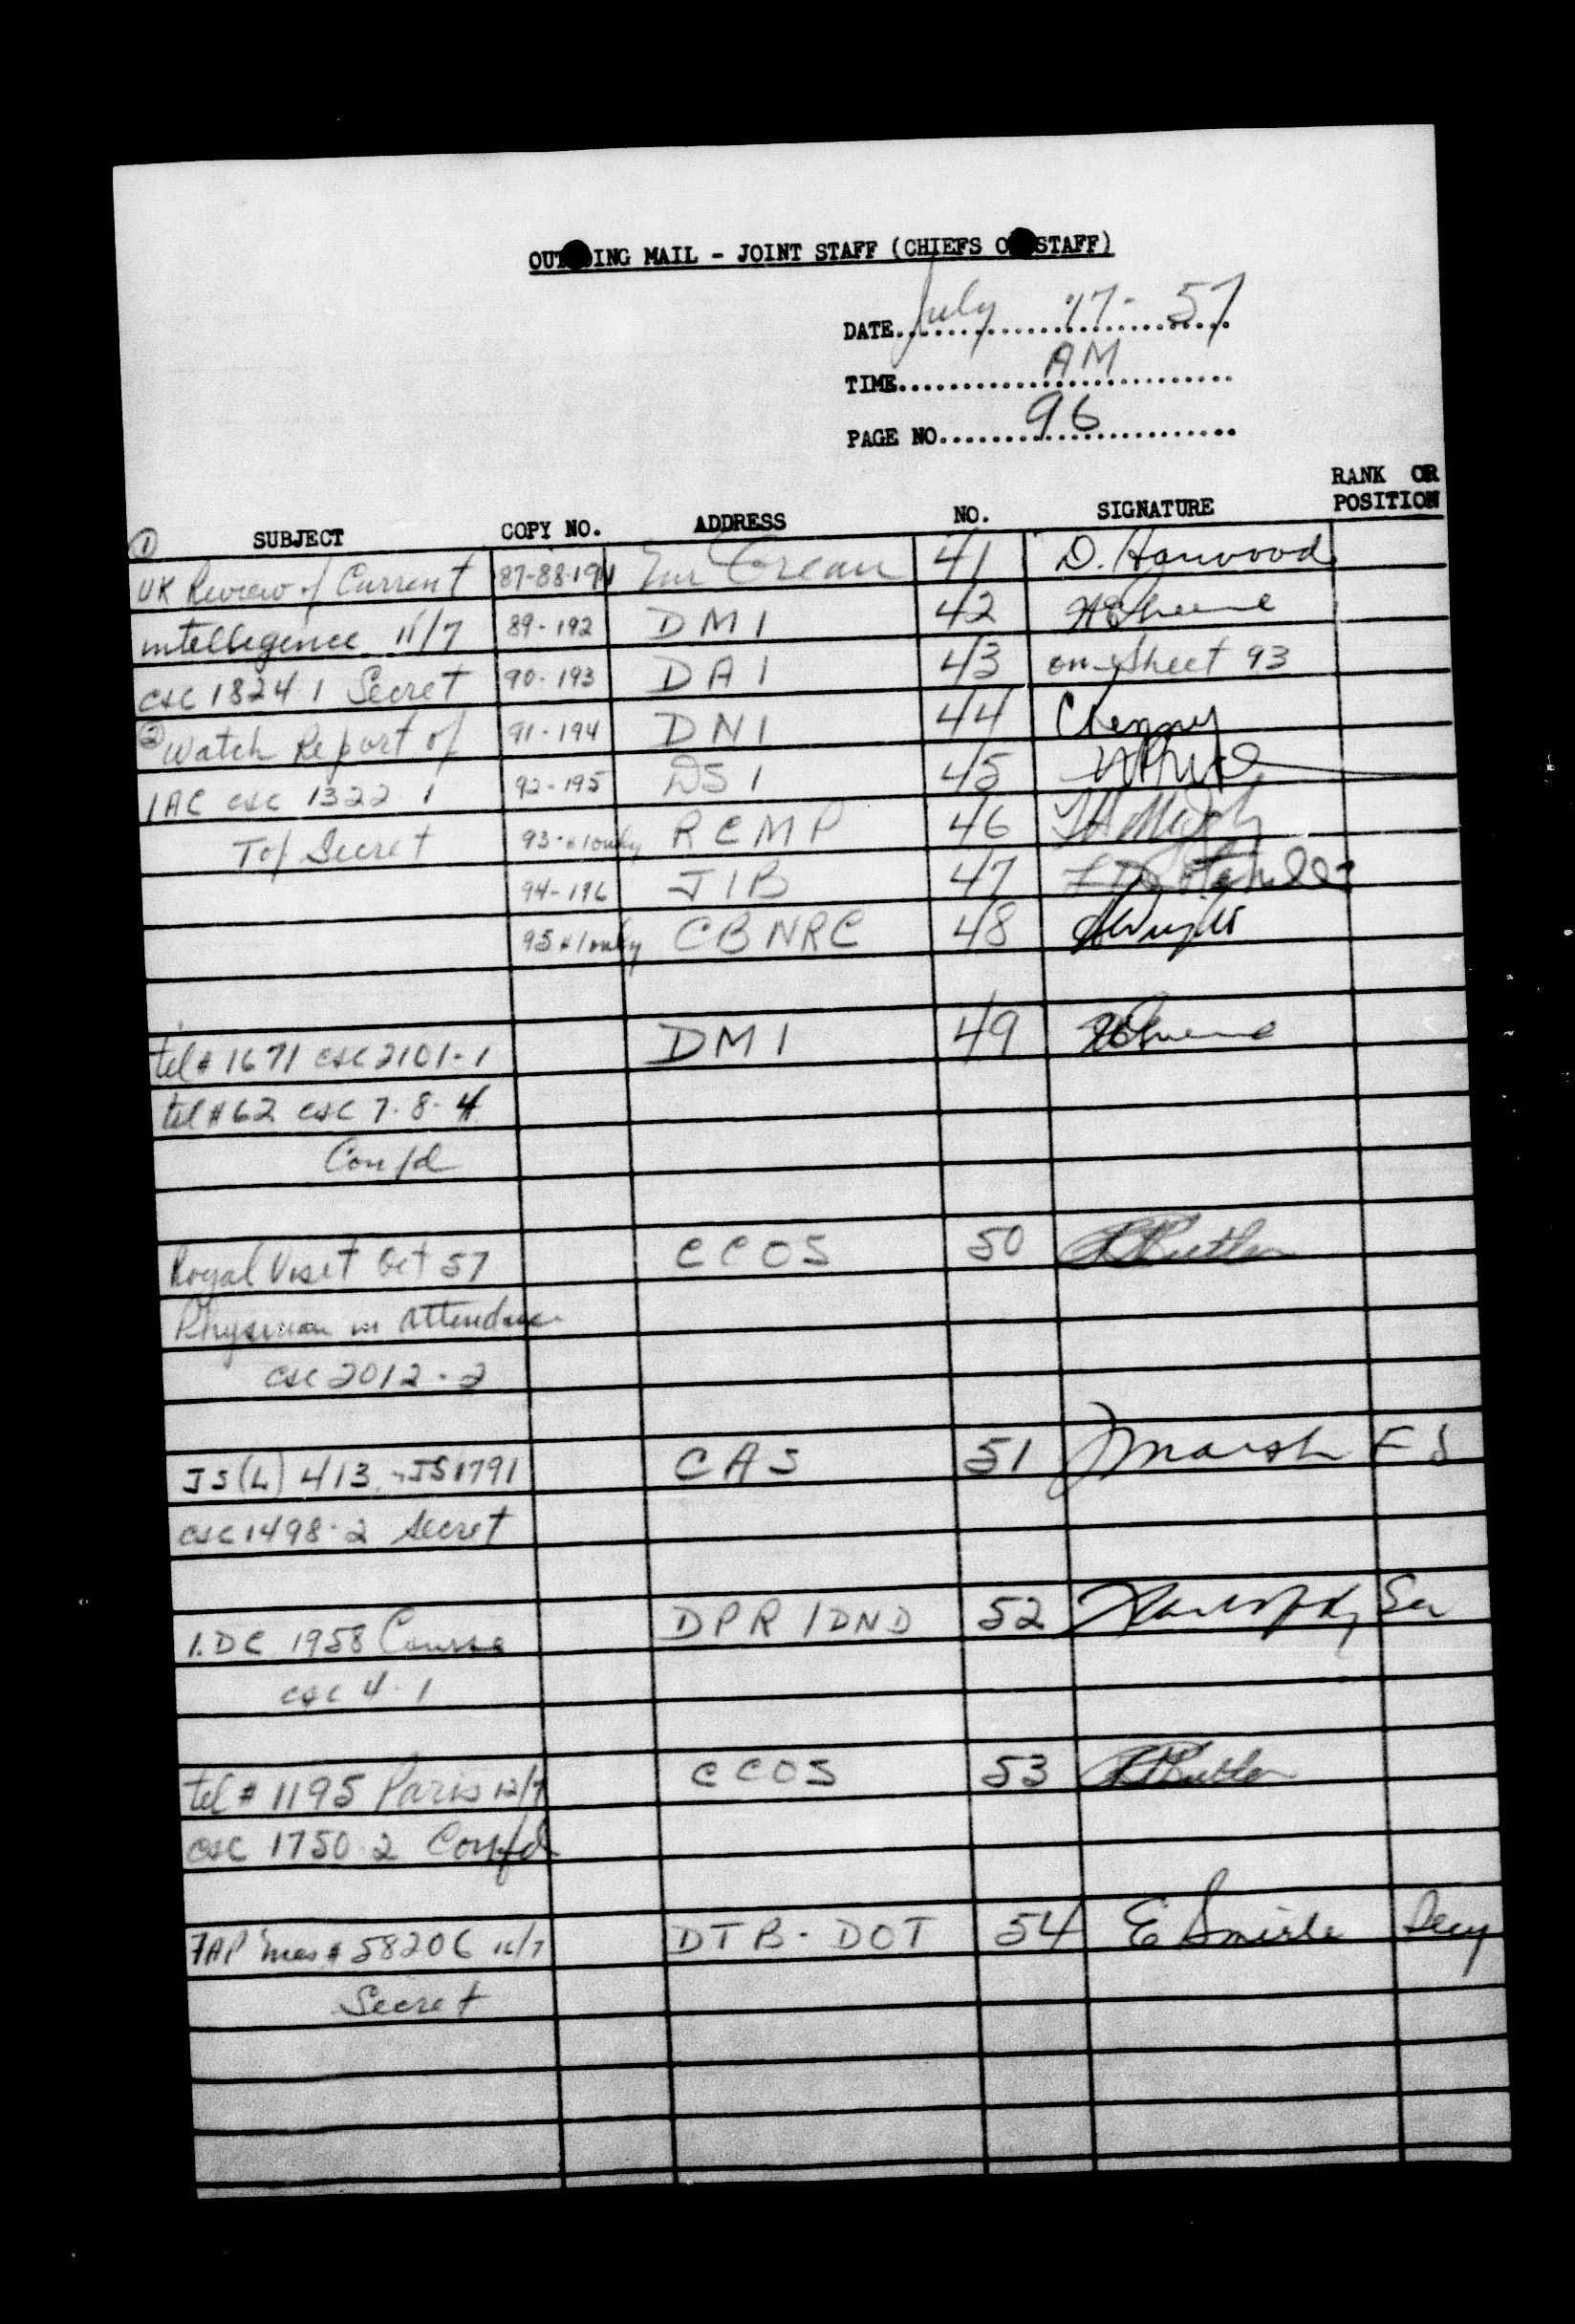 OUT ING MAIL - JOINT STAFF (CHIEFS O STAFF)
DATE July 17-57
TIME AM
PAGE NO. 96
RANK OR POSITION
① SUBJECT COPY NO. ADDRESS NO. SIGNATURE
UK Review of Current 87-88-191 Crean 41 D. Harwood
intelligence 11/7 89-192 DMI 42
csc 1824-1 Secret 90-193 DAI 43 on sheet 93
② Watch Report of 91-194 DNI 44
IAC csc 1322-1 92-195 DSI 45
Top Secret 93-#1 only RCMP 46
94-196 JIB 47
95 #1 only CBNRC 48 Wright
tel # 1671 csc 2101-1 DMI 49
tel # 62 csc 7-8-4
Confd
Royal Visit Oct 57 CCOS 50 Butler
Physician in Attendance
csc 2012-2
JS(L) 413 JS1791 CAS 51 Marsh
csc 1498-2 Secret
I.DC 1958 Course DPR/DND 52
csc 4-1
tel # 1195 Paris 12/7 CCOS 53 Butler
csc 1750-2 Confd
mes # 58206 16/7 DTB-DOT 54 E Smirle Secy
Secret